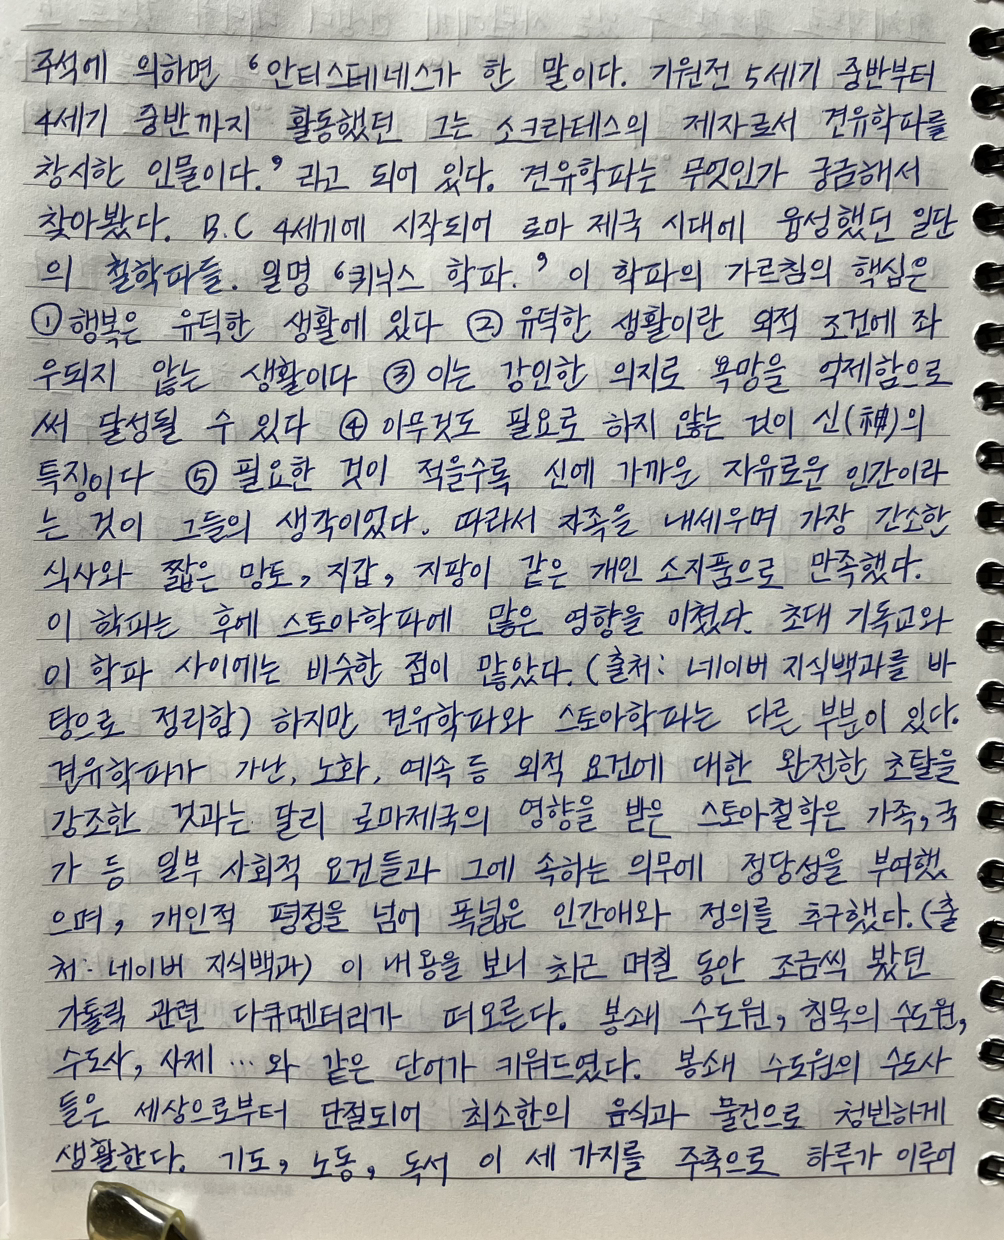 주석에 의하면 '안티스테네스가 한 말이다. 기원전 5세기 중반부터
4세기 중반까지 활동했던 그는 소크라테스의 제자로서 견유학파를
창시한 인물이다.' 라고 되어 있다. 견유학파는 무엇인가 궁금해서
찾아봤다. B.C 4세기에 시작되어 로마 제국 시대에 융성했던 일단
의 철학파들. 일명 '키닉스 학파.' 이 학파의 가르침의 핵심은
① 행복은 유덕한 생활에 있다 ② 유덕한 생활이란 외적 조건에 좌
우되지 않는 생활이다 ③ 이는 강인한 의지로 욕망을 억제함으로
써 달성될 수 있다 ④ 아무것도 필요로 하지 않는 것이 신(神)의
특징이다 ⑤ 필요한 것이 적을수록 신에 가까운 자유로운 인간이라
는 것이 그들의 생각이었다. 따라서 자족을 내세우며 가장 간소한
식사와 짧은 망토, 지갑, 지팡이 같은 개인 소지품으로 만족했다.
이 학파는 후에 스토아학파에 많은 영향을 미쳤다. 초대 기독교와
이 학파 사이에는 비슷한 점이 많았다. (출처: 네이버 지식백과를 바
탕으로 정리함) 하지만 견유학파와 스토아학파는 다른 부분이 있다.
견유학파가 가난, 노화, 예속 등 외적 요건에 대한 완전한 초탈을
강조한 것과는 달리 로마제국의 영향을 받은 스토아철학은 가족, 국
가 등 일부 사회적 요건들과 그에 속하는 의무에 정당성을 부여했
으며, 개인적 평정을 넘어 폭넓은 인간애와 정의를 추구했다. (출
처: 네이버 지식백과) 이 내용을 보니 최근 며칠 동안 조금씩 봤던
가톨릭 관련 다큐멘터리가 떠오른다. 봉쇄 수도원, 침묵의 수도원,
수도사, 사제 …와 같은 단어가 키워드였다. 봉쇄 수도원의 수도사
들은 세상으로부터 단절되어 최소한의 음식과 물건으로 청빈하게
생활한다. 기도, 노동, 독서 이 세 가지를 주축으로 하루가 이루어